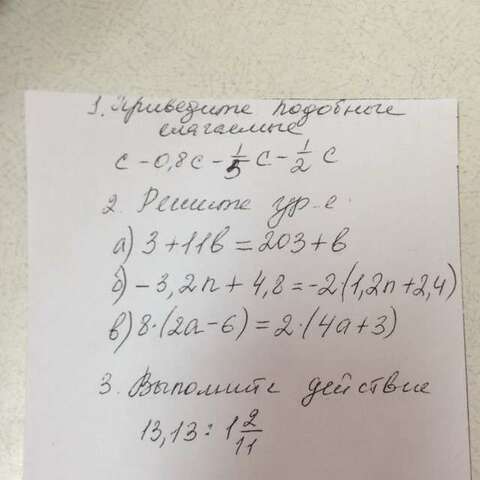 1. Приведите подобные
слагаемые
c - 0,8c - 1/5 c - 1/2 c
2. Решите ур-е
а) 3 + 11в = 203 + в
б) - 3,2n + 4,8 = -2·(1,2n + 2,4)
в) 8·(2a - 6) = 2·(4a + 3)
3. Выполните действие
13,13 : 1 2/11